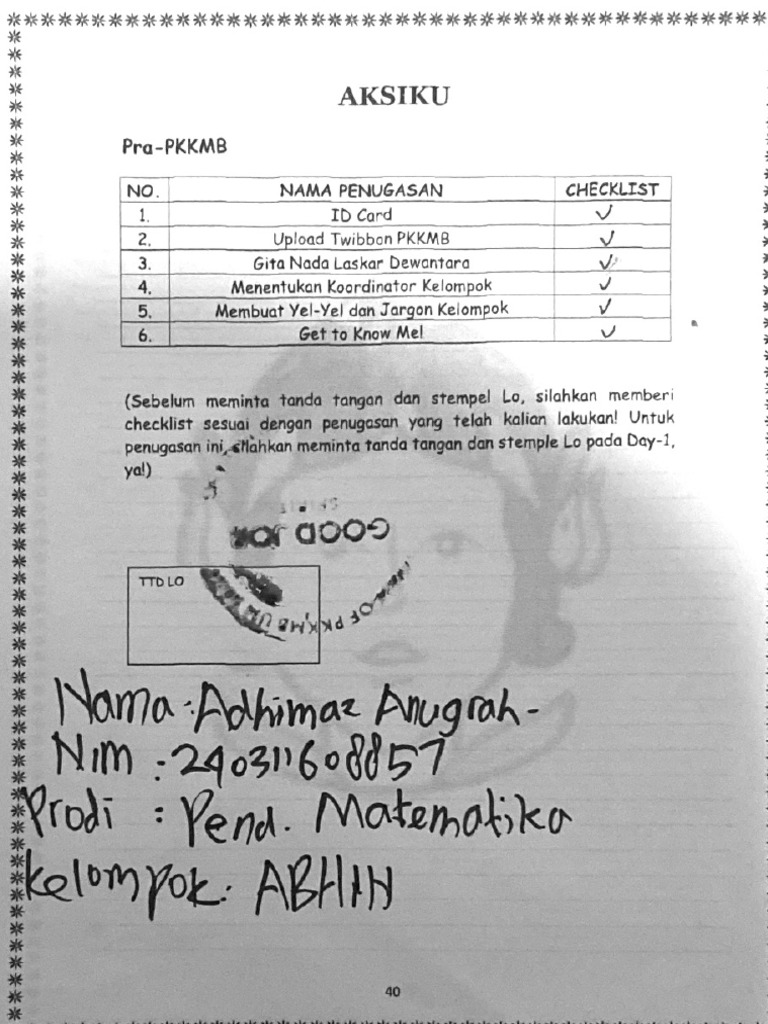 AKSIKU
Pra-PKKMB
NO. NAMA PENUGASAN CHECKLIST
1. ID Card ✓
2. Upload Twibbon PKKMB ✓
3. Gita Nada Laskar Dewantara ✓
4. Menentukan Koordinator Kelompok ✓
5. Membuat Yel-Yel dan Jargon Kelompok ✓
6. Get to Know Me! ✓
(Sebelum meminta tanda tangan dan stempel Lo, silahkan memberi
checklist sesuai dengan penugasan yang telah kalian lakukan! Untuk
penugasan ini, silahkan meminta tanda tangan dan stemple Lo pada Day-1,
ya!)
GOOD JOB
OF PKKMB
TTD LO
Nama : Adhimaz Anugrah -
Nim : 240311608857
Prodi : Pend. Matematika
Kelompok :
40